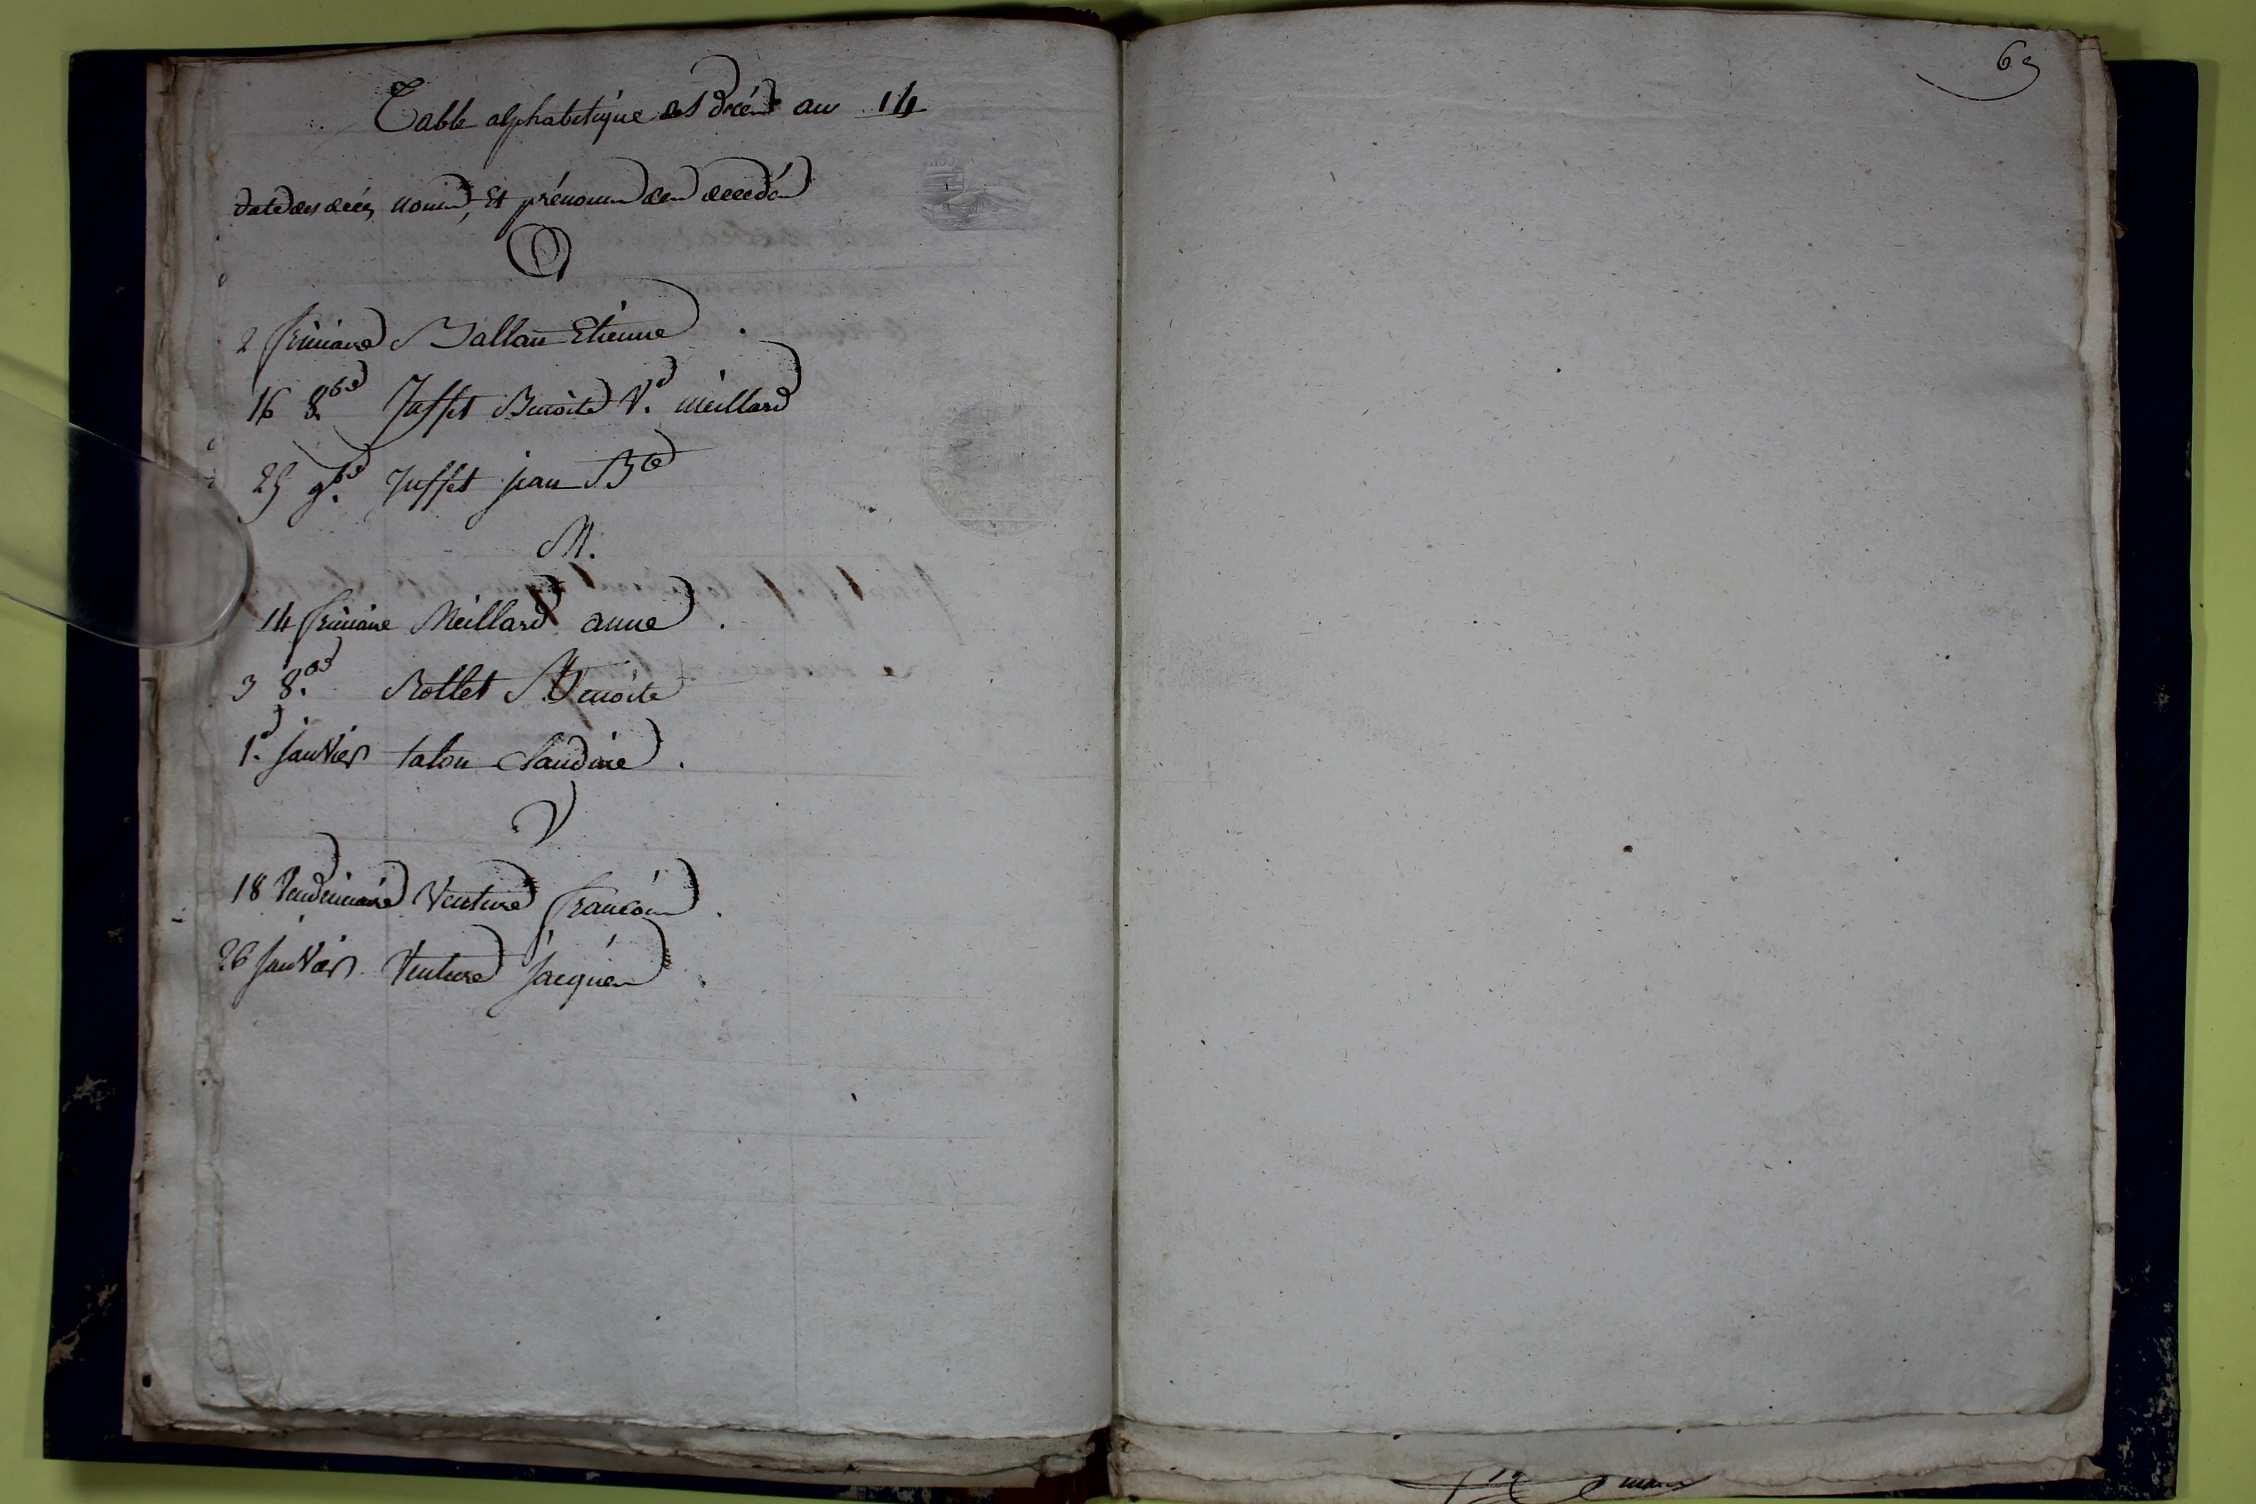 Table alphabetique des décés an 14
date des décés, noms, Et prénoms des decedés
2 frimaire Ballan Etienne
16 8.bre Juffet Benoite V.e meillard
25 9.bre Juffet jean Bte
M.
14 frimaire Meillard anne.
3 8.bre Rollet Benoite
1.er janvier talon Claudine.
V
18 Vendemiaire Venture francois.
26 janvier Venture jacques.